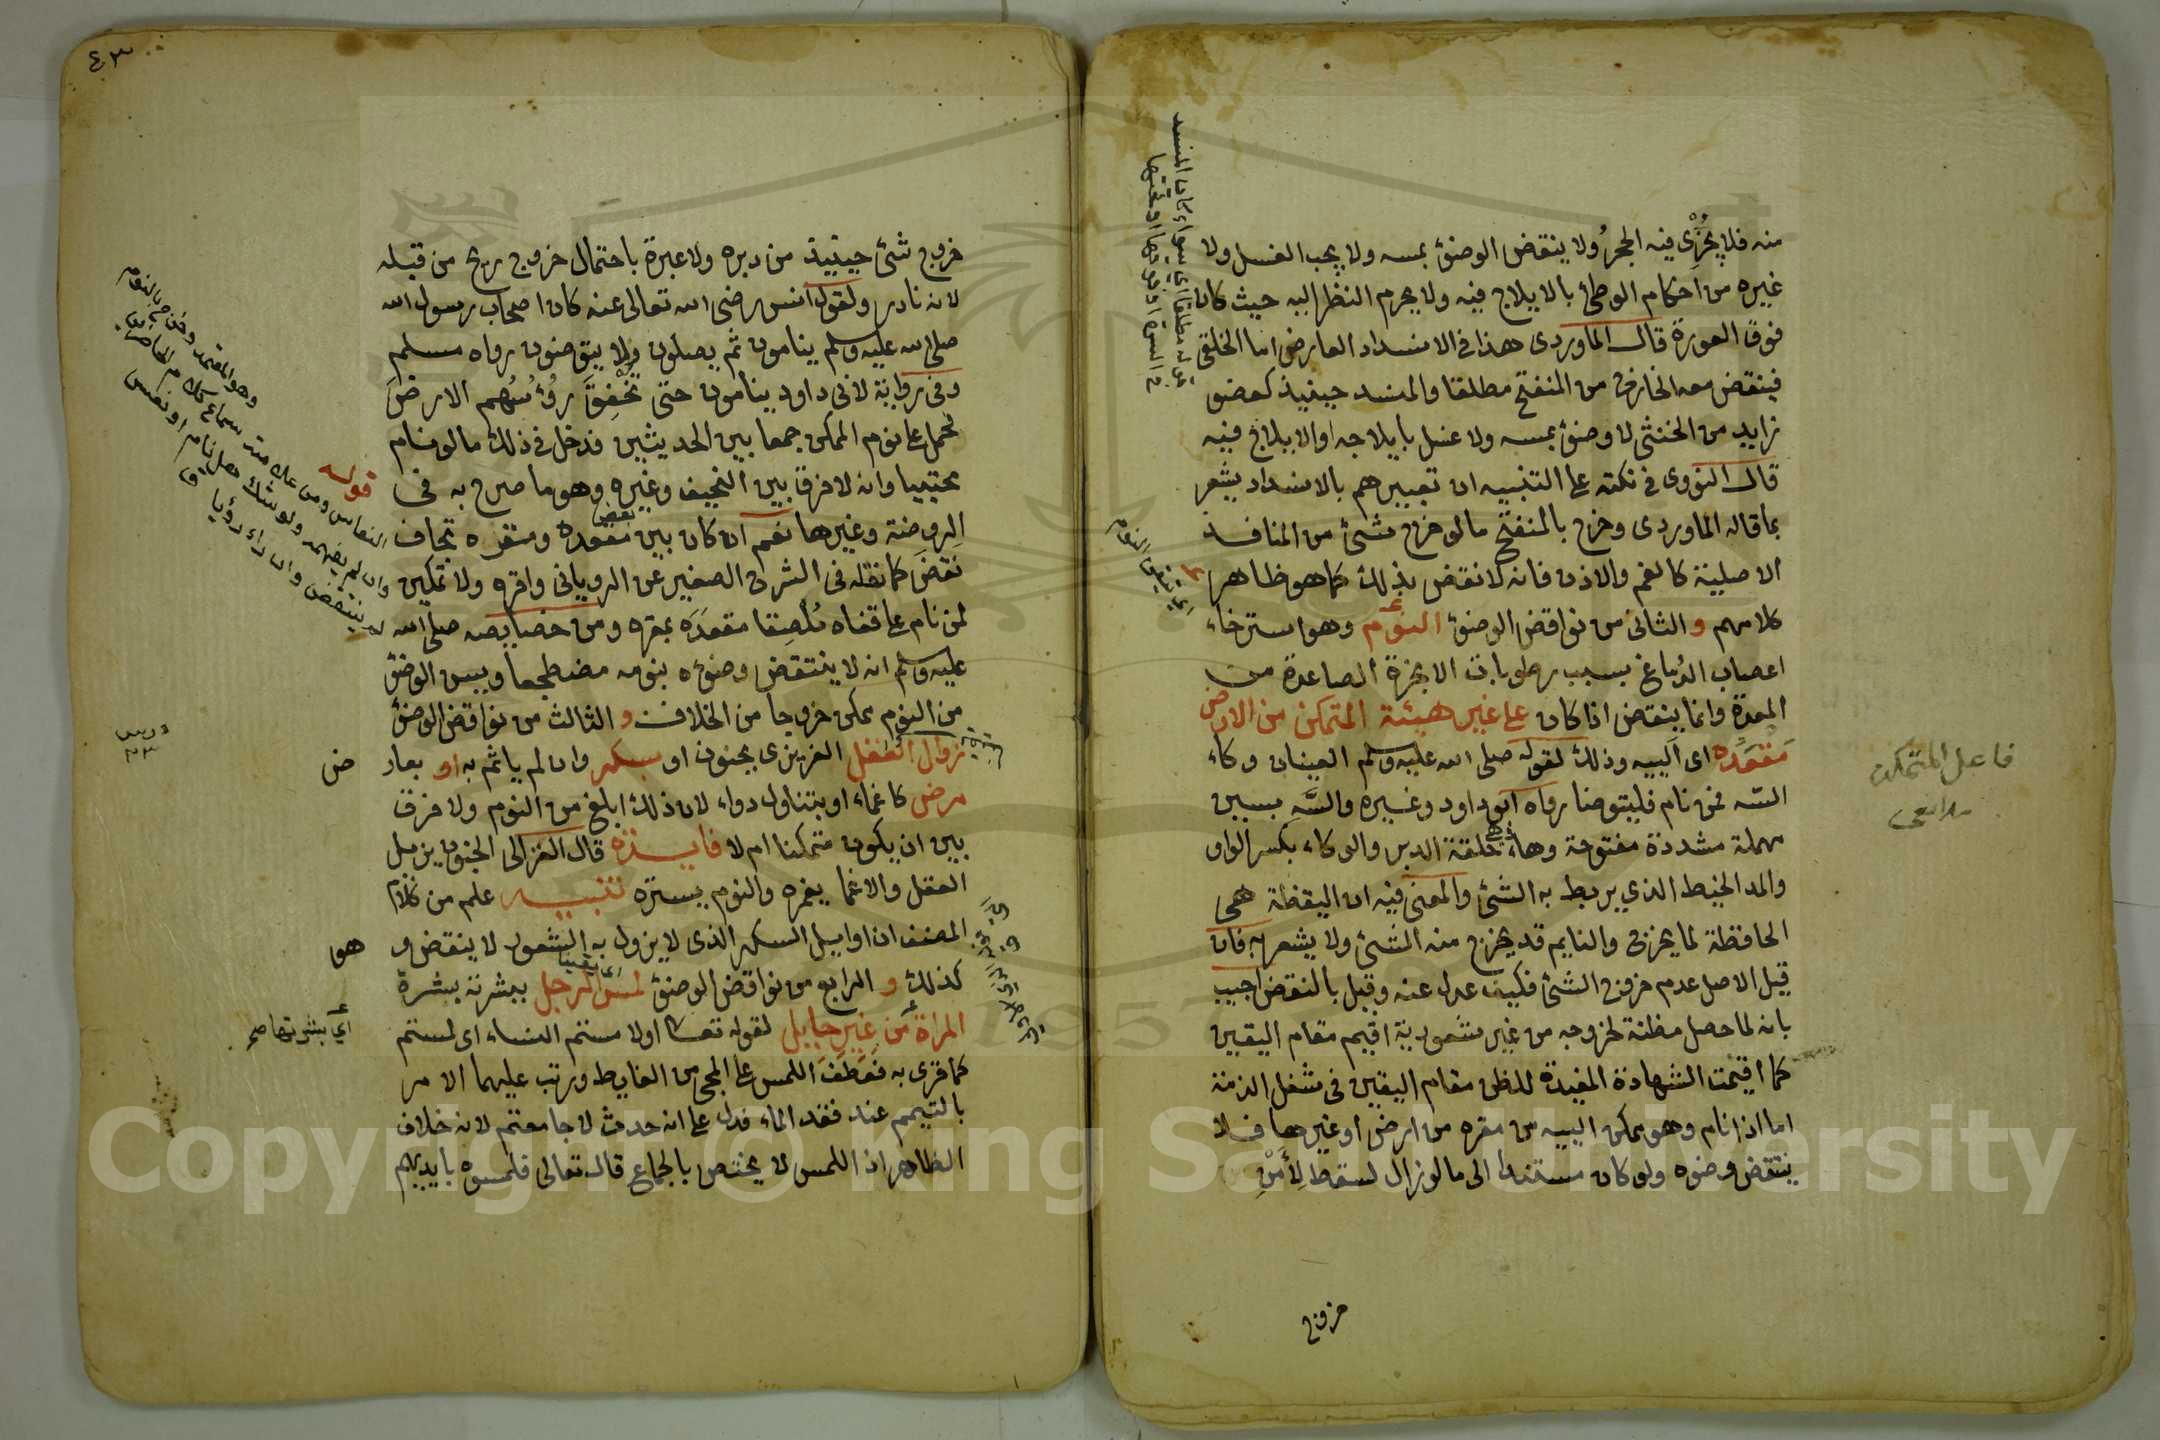 منه فلا يُجْزِئ فيه الحجرُ ولا ينقض الوضؤ بمسه ولا يجب الغسل ولا
غيره من احكام الوطئ بالايلاج فيه ولا يحرم النظر اليه حيث كان
فوق العورة قال الماوردى هذا فى الانسداد العارض اما الخلقى
فينقض معه الخارج من المنفتح مطلقا والمنسد حينيذ كعضو
زايد من الخنثى لا وضوْ بمسه ولا غسل بايلاجه او الايلاج فيه
قال النووى فى نكته على التنبيه ان تعبيرهم بالانسداد يشعر
بما قاله الماوردى وخرج بالمنفتح مالو خرج شئ من المنافذ
الاصلية كالفم والاذن فانه لا نقض بذلك كما هو ظاهر
كلامهم و الثانى من نواقض الوضؤ النوم وهو استرخاء
اعصاب الدماغ بسبب رطوبات الابخرة الصاعدة من
المعدة وانما ينقض اذا كان على غير هيئة المتمكن من الارض
مَقْعَدُه اى اَلييه وذلك لقوله صلى الله عليه وسلم العينان وكاء
السّه فمن نام فليتوضا رواه ابو داود وغيره والسَّه بسين
مهملة مشددة مفتوحة وهاء حلقة الدبر والوكاء بكسر الواو
والمد الخيط الذي يربط به الشئ والمعنى فيه ان اليقظة هى
الحافظة لما يخرج والنايم قد يخرج منه الشئ ولا يشعر به فان
قيل الاصل عدم خروج الشئ فكيف عدل عنه وقيل بالنقض اجيب
بانه لما حصل مظنة لخروجه من غير شعور به اقيم مقام اليقين
كما اقيمت الشهادة المفيدة للظن مقام اليقين فى شغل الذمة
اما اذا نام وهو ممكن اليبيه من مقره من ارض او غيرها فلا
ينتقض وضوه ولو كان مستندا الى ما لو زال لسقط لِأَمْنِ
خروج
فاعل المتمكن
٤٣
خروج شئ حينيذ من دبره ولا عبرة باحتمال خروج ريح من قبله
لانه نادر ولقول انس رضى الله تعالى عنه كان اصحاب رسول الله
صلى الله عليه وسلم ينامون ثم يصلون ولا يتوضئون رواه مسلم
وفى رواية لابى داود ينامون حتى تَخْفِقَ رؤُسُهم الارضَ
فحمل على نوم الممكن جمعا بين الحديثين فدخل فى ذلك مالو نام
محتبيا وانه لا فرق بين النحيف وغيره وهو ما صرح به فى
الروضة وغيرها نعم ان كان بين بعض مقعده ومقره تجاف
نقض كما نقله فى الشرح الصغير عن الرويانى واقره ولا تمكين
لمن نام على قفاه مُلْصِقا مقعدَه بمقره ومن خصايصه صلى الله
عليه وسلم انه لا ينتقض وضوْه بنومه مضطجعا ويسن الوضؤ
من النوم ممكن خروجا من الخلاف و الثالث من نواقض الوضؤ
زوال العقل الغريزى بجنون او سكر وان لم ياثم به او بعار
ض
مرض كاغماء او بتناول دواء لان ذلك ابلغ من النوم ولا فرق
بين ان يكون متمكنا ام لا فايدة قال الغزالى الجنون يزيل
العقل والاغما يغمره والنوم يستره تنبيه علم من كلام
المصنف ان اوايل السكر الذى لا يزول به الشعور لا ينقض و
هو
كذلك و الرابع من نواقض الوضؤ لمس الرجل ببشرته بشرة
المراة من غير حايل لقوله تعالى او لامستم النساء اى لمستم
كما قرى به فعَطَفَ اللمس على المجى من الغايط ورتب عليهما الامر
بالتيمم عند فقد الماء فدل على انه حدث لا جامعتم لانه خلاف
الظاهر اذ اللمس لا يختص بالجماع قال تعالى فلمسوه بايديهم
قوله
اي بشرتها صح